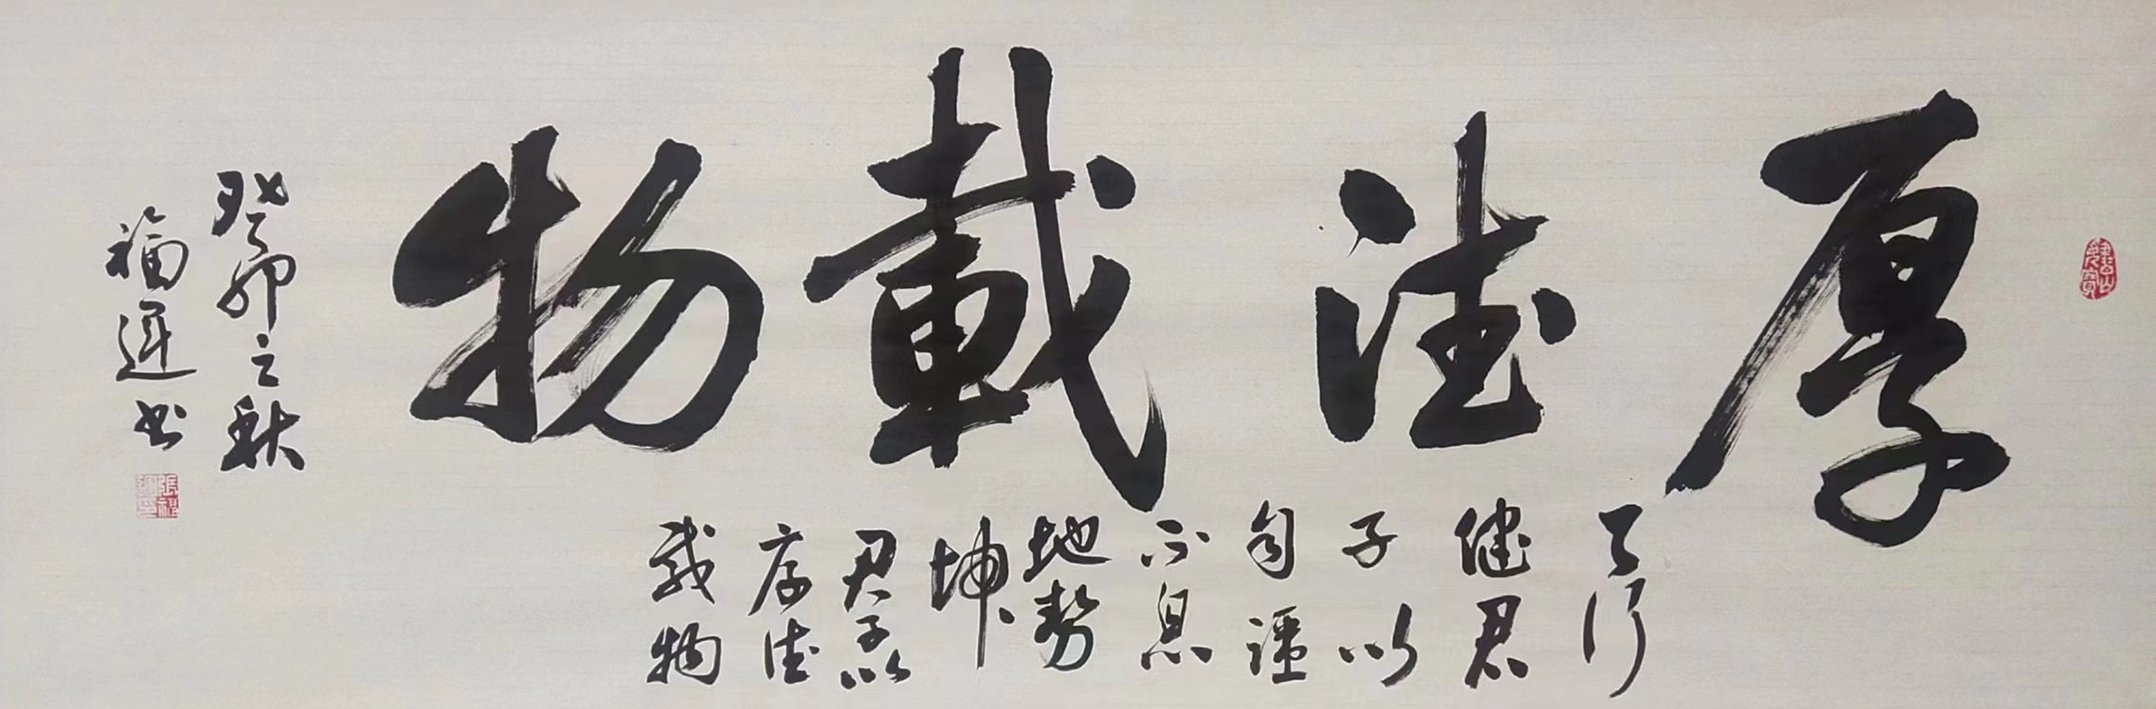 厚德載物
天行
健君
子以
自强
不息
地勢
坤
君子以
厚德
載物
癸卯之秋
福運书